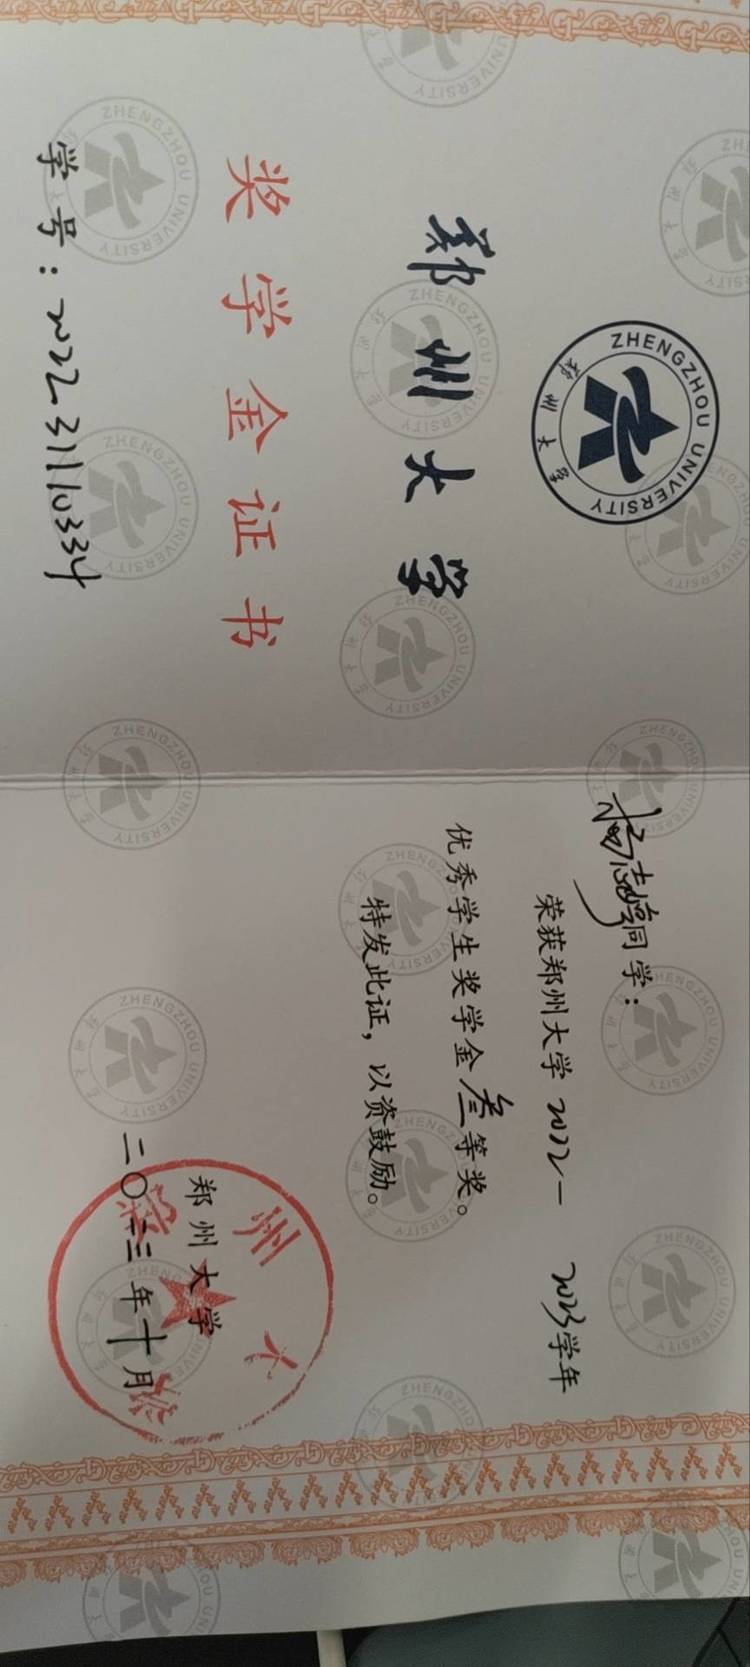 ZHENGZHOU UNIVERSITY
郑州大学
郑州大学
奖学金证书
学号：202231110334
同学：
荣获郑州大学2022—2023学年
优秀学生奖学金叁等奖。
特发此证，以资鼓励。
郑州大学
二〇二三年十月